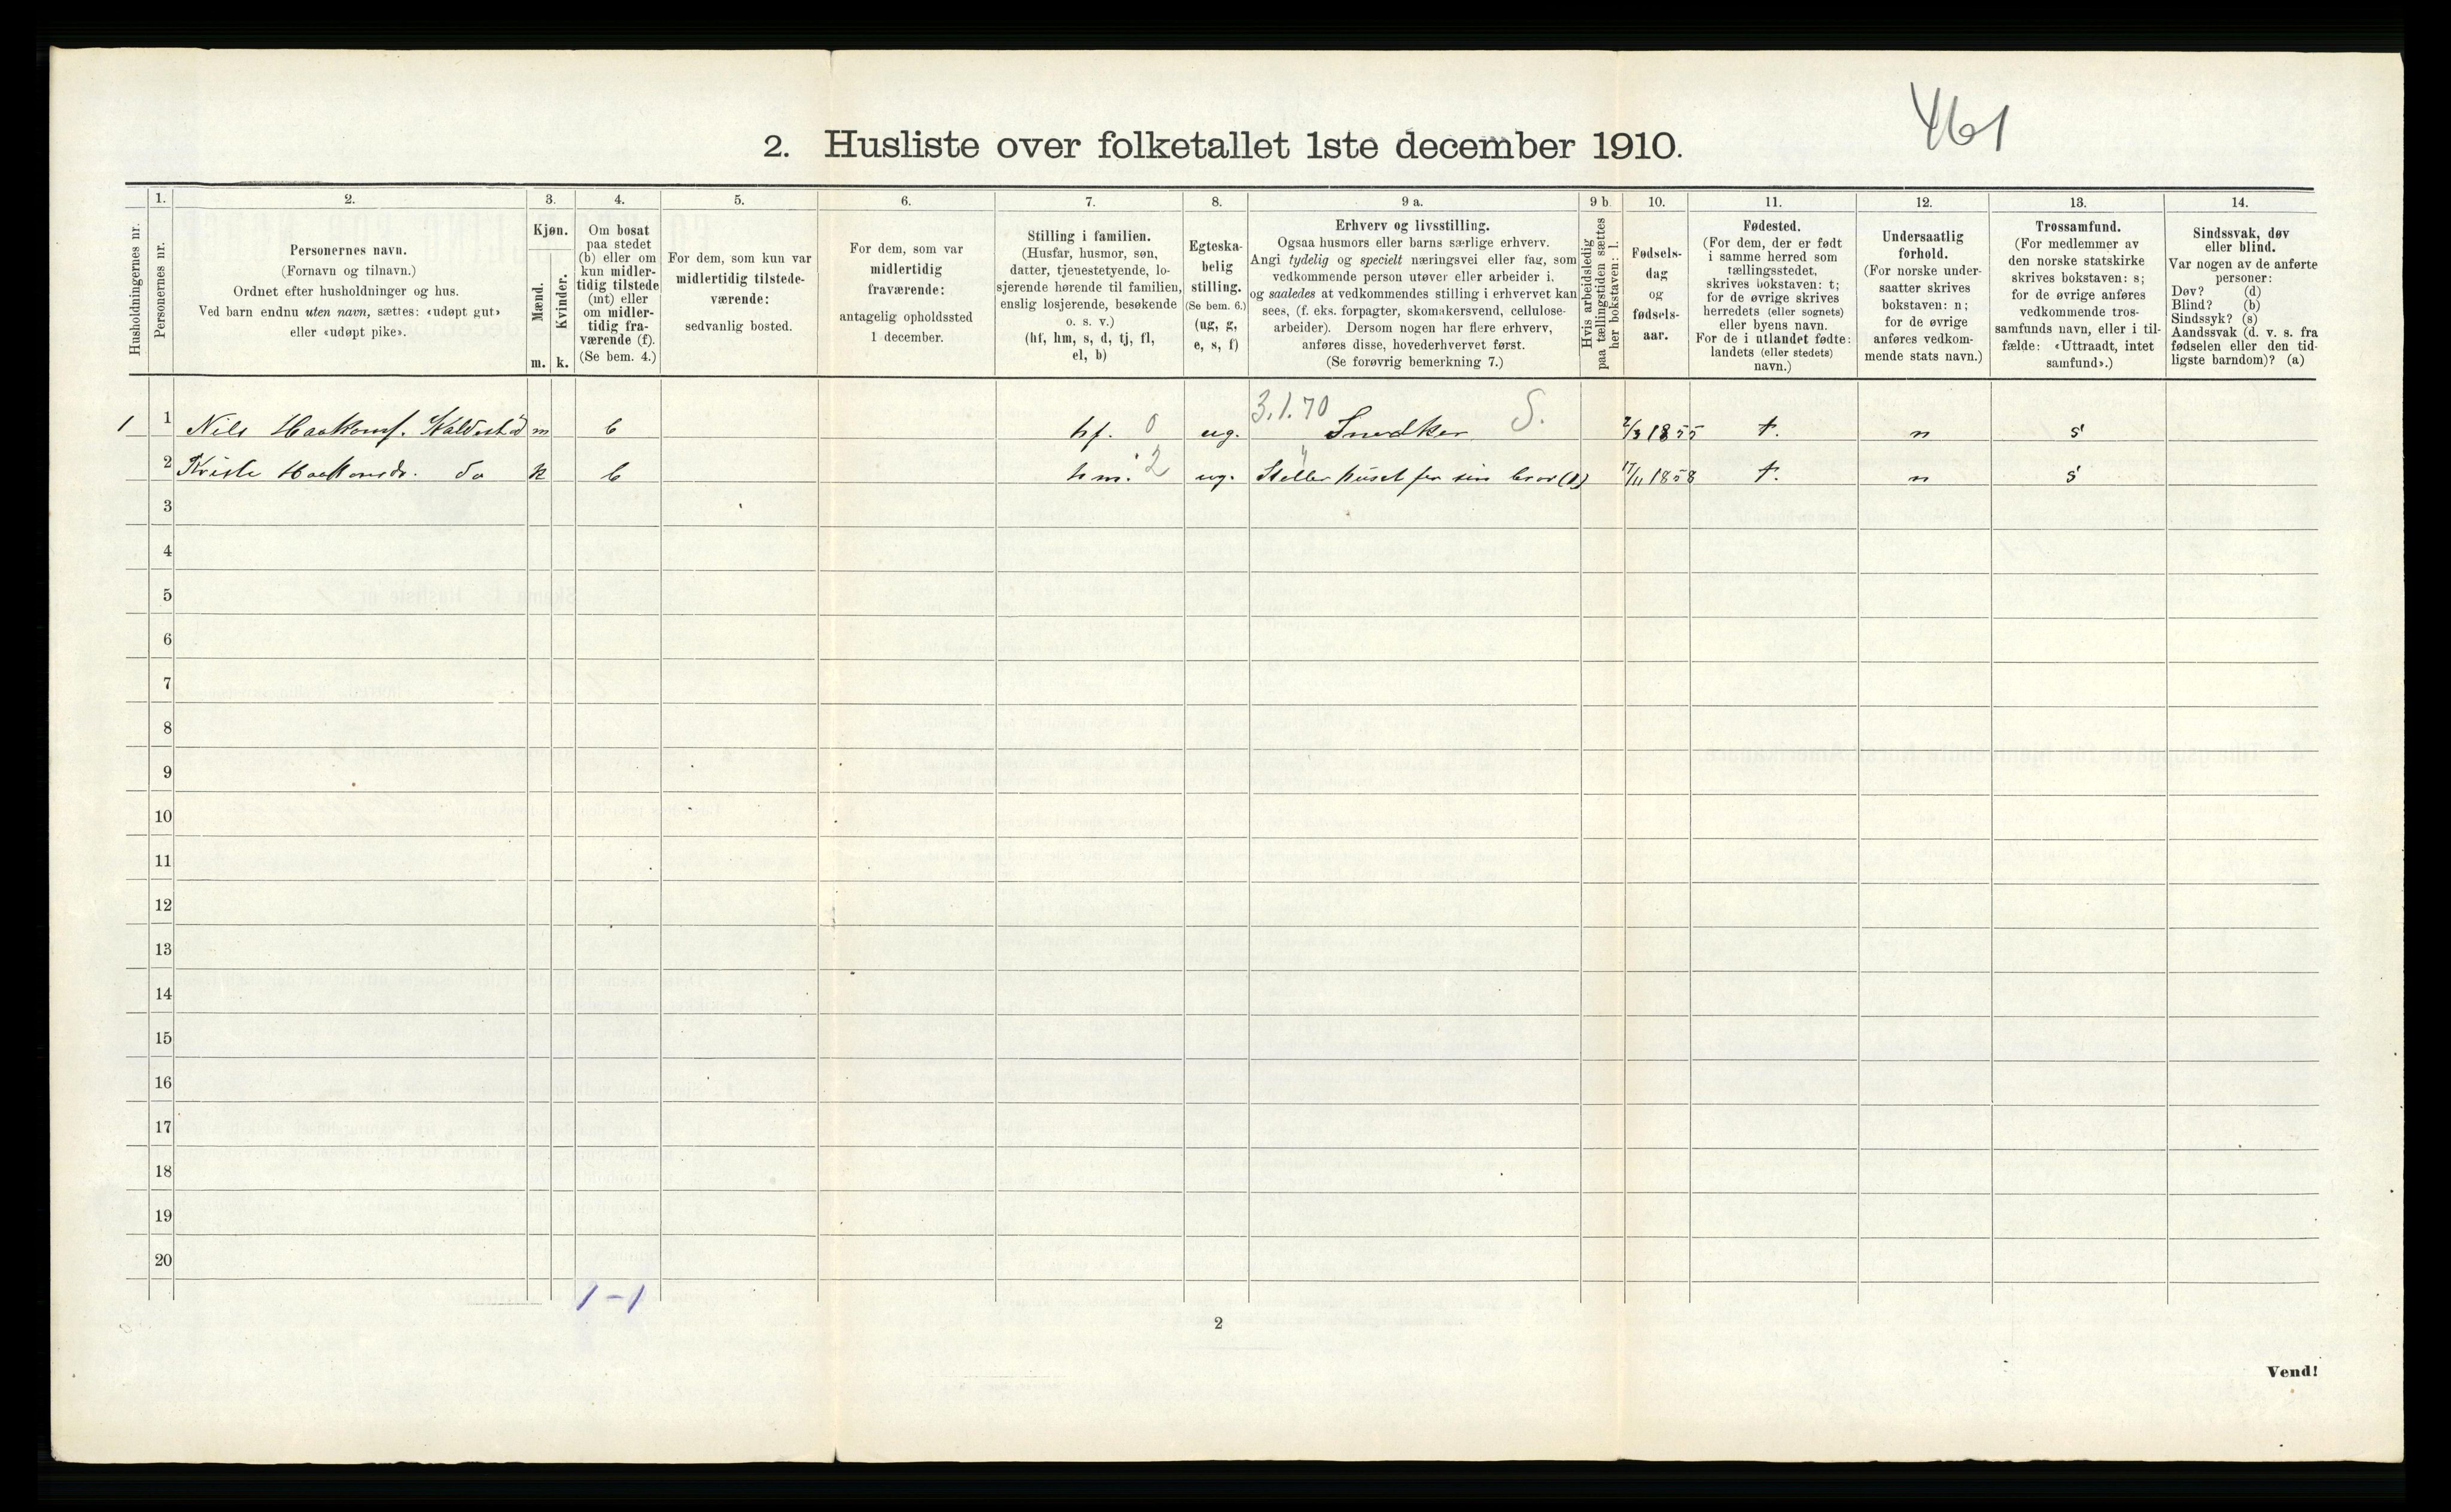 461
2. Husliste over folketallet 1ste december 1910.
Husholdningernes nr.
1.
Personernes nr.
2.
Personernes navn.
(Fornavn og tilnavn.)
Ordnet efter husholdninger og hus.
Ved barn endnu uten navn, sættes: «udøpt gut»
eller «udøpt pike».
3.
Kjøn.
Mænd.
Kvinder.
m. k.
4.
Om bosat
paa stedet
(b) eller om
kun midler-
tidig tilstede
(mt) eller
om midler-
tidig fra-
værende (f).
(Se bem. 4.)
5.
For dem, som kun var
midlertidig tilstede-
værende:
sedvanlig bosted.
6.
For dem, som var
midlertidig
fraværende:
antagelig opholdssted
1 december.
7.
Stilling i familien.
(Husfar, husmor, søn,
datter, tjenestetyende, lo-
sjerende hørende til familien,
enslig losjerende, besøkende
o. s. v.)
(hf, hm, s, d, tj, fl,
el, b)
8.
Egteska-
belig
stilling.
(Se bem. 6.)
(ug, g,
e, s, f)
9 a.
Erhverv og livsstilling.
Ogsaa husmors eller barns særlige erhverv.
Angi tydelig og specielt næringsvei eller fag, som
vedkommende person utøver eller arbeider i,
og saaledes at vedkommendes stilling i erhvervet kan
sees, (f. eks. forpagter, skomakersvend, cellulose-
arbeider). Dersom nogen har flere erhverv,
anføres disse, hovederhvervet først.
(Se forøvrig bemerkning 7.)
9 b.
Hvis arbeidsledig
paa tællingstiden sættes
her bokstaven: l.
10.
Fødsels-
dag
og
fødsels-
aar.
11.
Fødested.
(For dem, der er født
i samme herred som
tællingsstedet,
skrives bokstaven: t;
for de øvrige skrives
herredets (eller sognets)
eller byens navn.
For de i utlandet fødte:
landets (eller stedets)
navn.)
12.
Undersaatlig
forhold.
(For norske under-
saatter skrives
bokstaven: n;
for de øvrige
anføres vedkom-
mende stats navn.)
13.
Trossamfund.
(For medlemmer av
den norske statskirke
skrives bokstaven: s;
for de øvrige anføres
vedkommende tros-
samfunds navn, eller i til-
fælde: «Uttraadt, intet
samfund».)
14.
Sindssvak, døv
eller blind.
Var nogen av de anførte
personer:
Døv? (d)
Blind? (b)
Sindssyk? (s)
Aandssvak (d. v. s. fra
fødselen eller den tid-
ligste barndom)? (a)
3.1.70 S.
1 1 Nils Haakons. m b hf. 0 ug. Snedker 2/3 1855 t. n s
2 Haakonsdr. do k b hm. 2 ug. Steller huset for sin bror (1) 17/11 1858 t. n s
3
4
5
6
7
8
9
10
11
12
13
14
15
16
17
18
19
20
1-1
2
Vend!